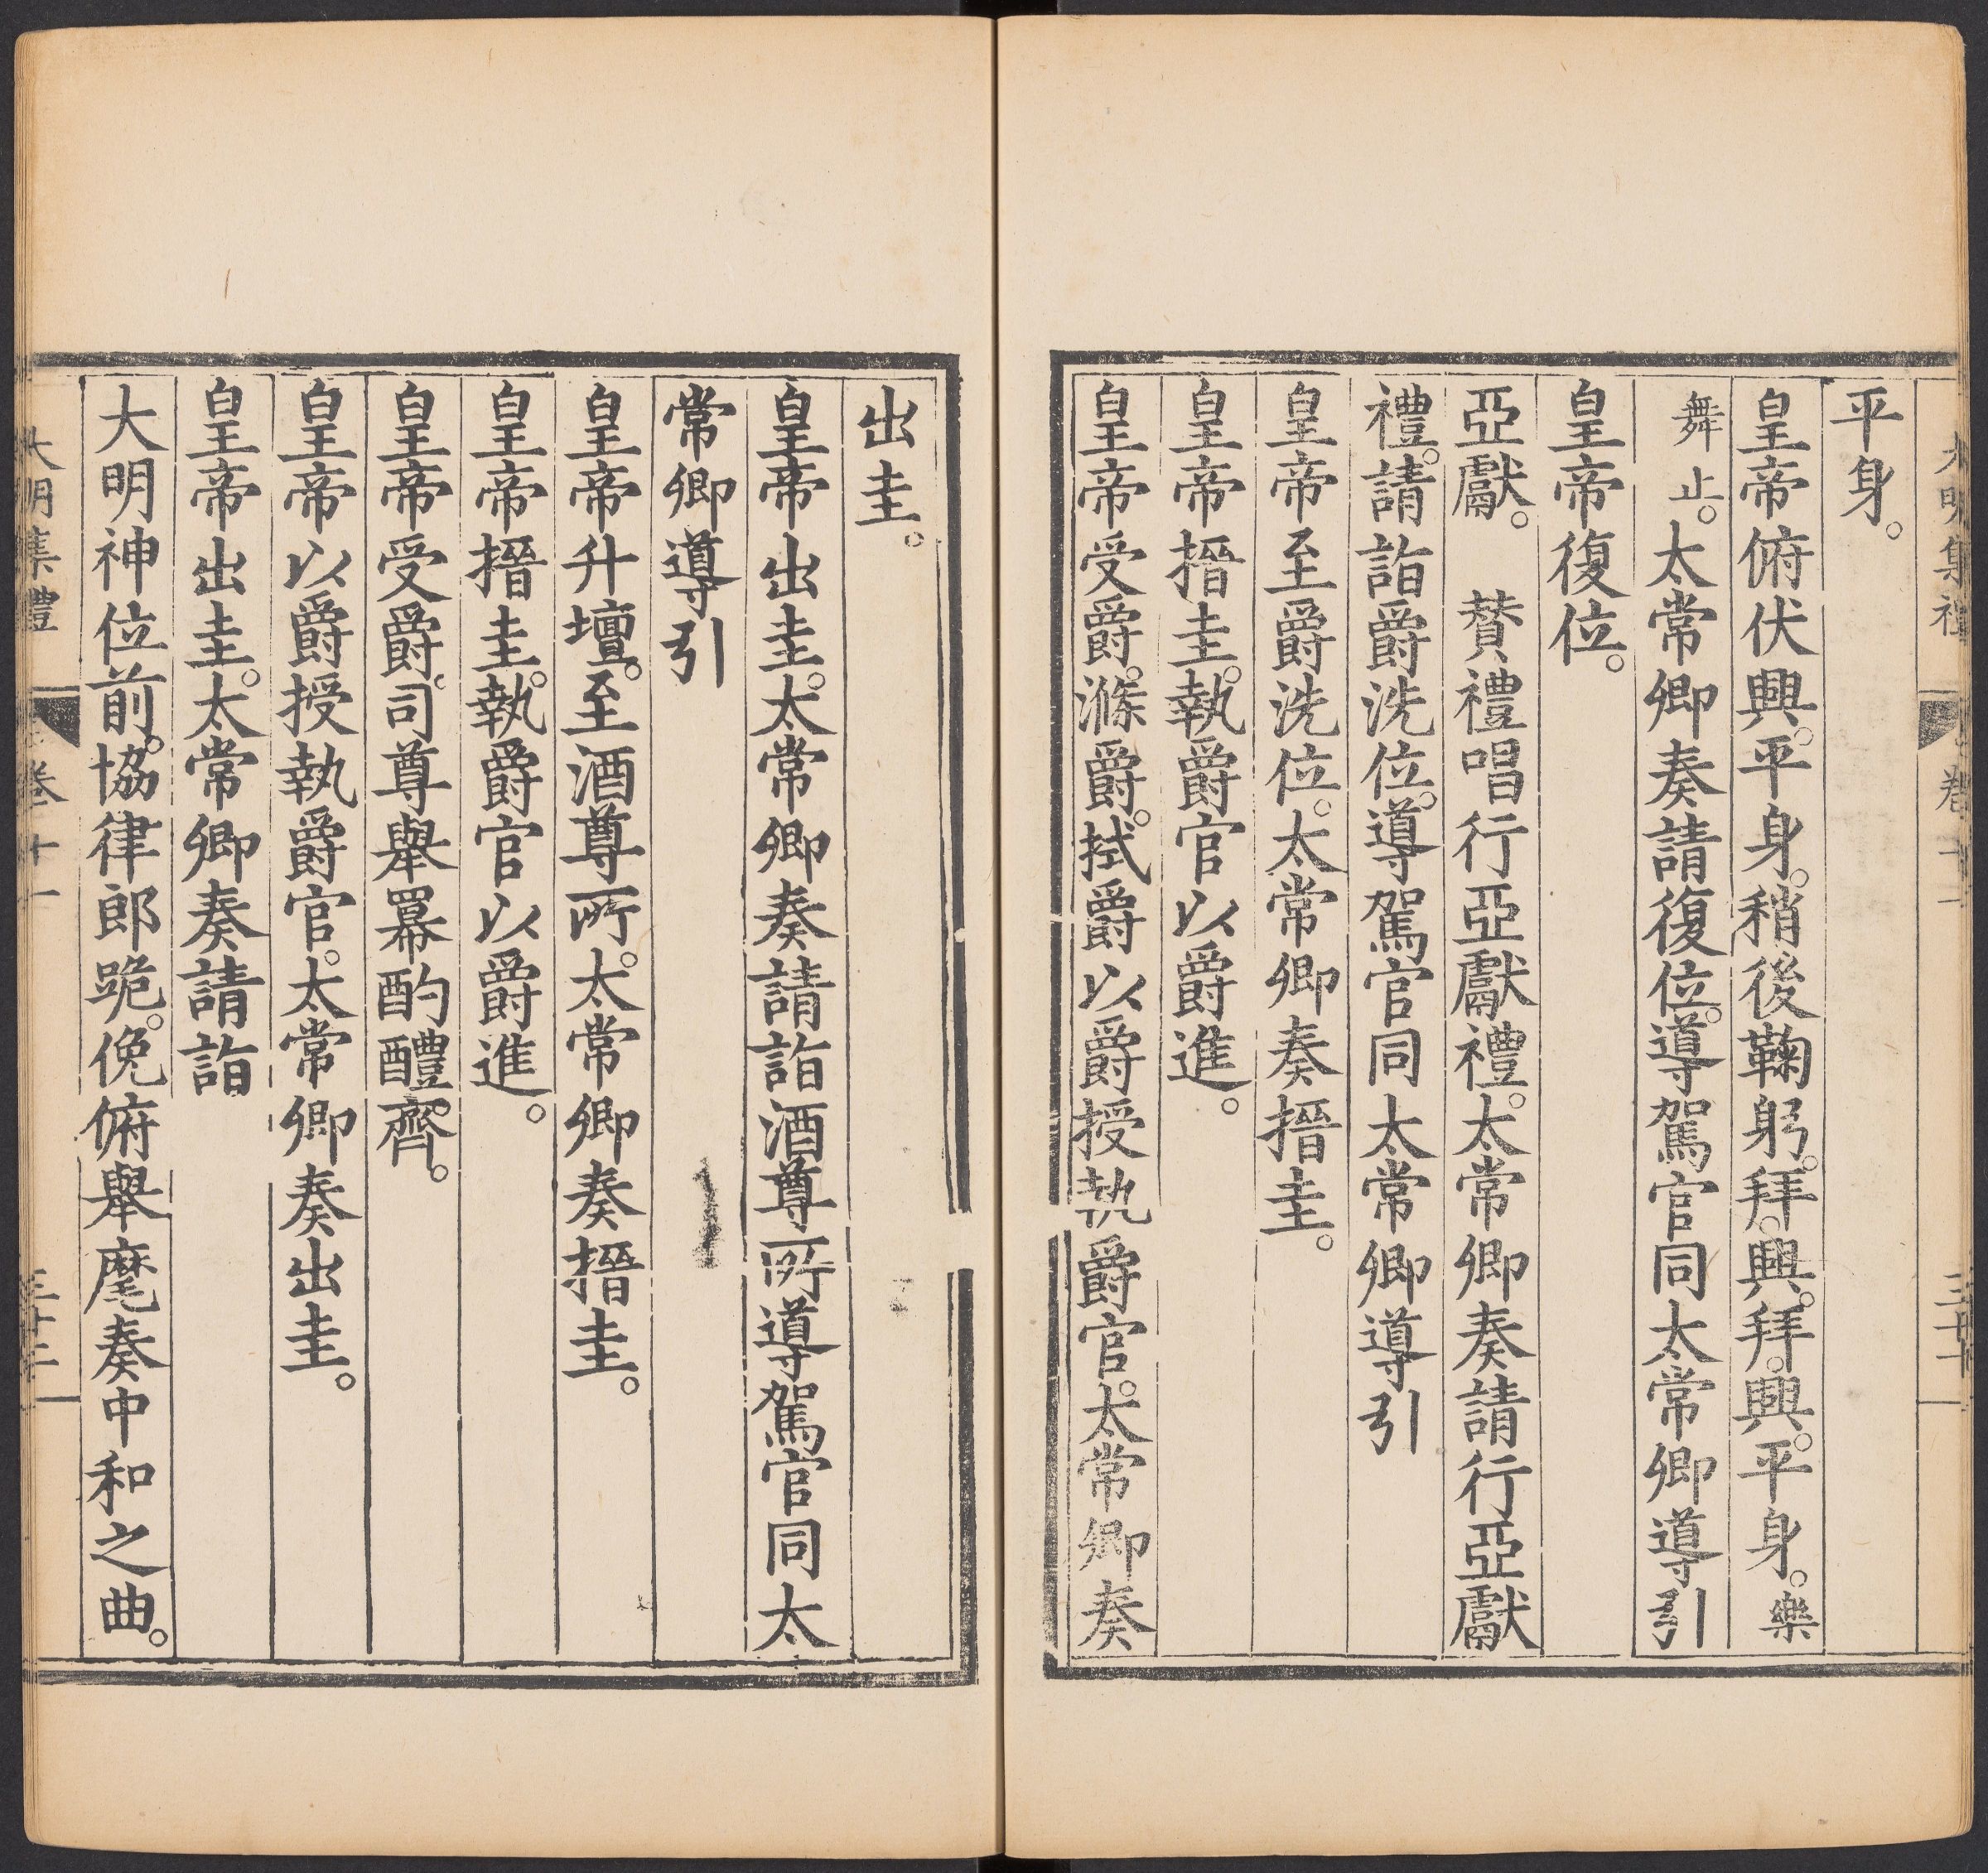 大明集禮 卷十一 三十一
平身。
皇帝俯伏興。平身。稍後鞠躬。拜。興。拜。興。平身。樂
舞止。太常卿奏請復位。導駕官同太常卿導引
皇帝復位。
亞獻。 賛禮唱行亞獻禮。太常卿奏請行亞獻
禮。請詣爵洗位。導駕官同太常卿導引
皇帝至爵洗位。太常卿奏搢圭。
皇帝搢圭。執爵官以爵進。
皇帝受爵。滌爵。拭爵以爵授執爵官。太常卿奏
出圭。
皇帝出圭。太常卿奏請詣酒尊所導駕官同太
常卿導引
皇帝升壇。至酒尊所。太常卿奏搢圭。
皇帝搢圭。執爵官以爵進。
皇帝受爵。司尊舉冪酌醴齊。
皇帝以爵授執爵官。太常卿奏出圭。
皇帝出圭。太常卿奏請詣
大明神位前。協律郎跪。俛俯舉麾奏中和之曲。
大明集禮 卷十一 三十二